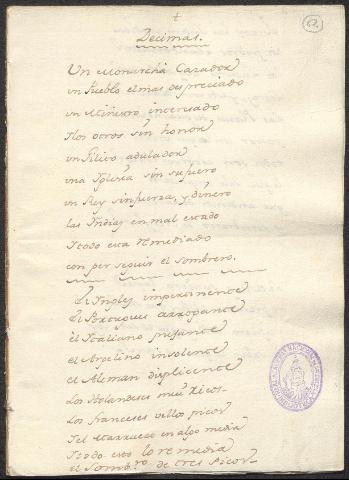 Decimas.
Un Monarcha Cazador
un Pueblo el mas despreciado
un Ministro interesado
Ylos otros sin honor
un adulador
una Iglesia sin su fuero
un Rey sin fuerza, y dinero
las Yndias en mal estado
Ytodo esta remediado
con perseguir el sombrero.
El Ynglés impertinente
El Portugues arrogante
el Italiano pujante
el Argelino insolente
el Aleman displicente
Los Holandeses mui ricos
Los franceses picos
Y el Marrueco en algo media
Ytodo esto lo remedia
el Sombro. de tres Picos